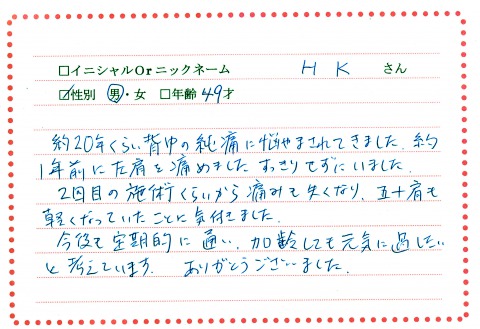 □イニシャルOrニックネーム H K さん
☑性別 男・女 □年齢 49才
約20年くらい背中の鈍痛に悩まされてきました。約
1年前に左肩を痛めました すっきりせずにいました。
2回目の施術くらいから痛みも失くなり、五十肩も
軽くなっていたことに気付きました。
今後も定期的に通い、加齢しても元気に過したい
と考えています。 ありがとうございました。